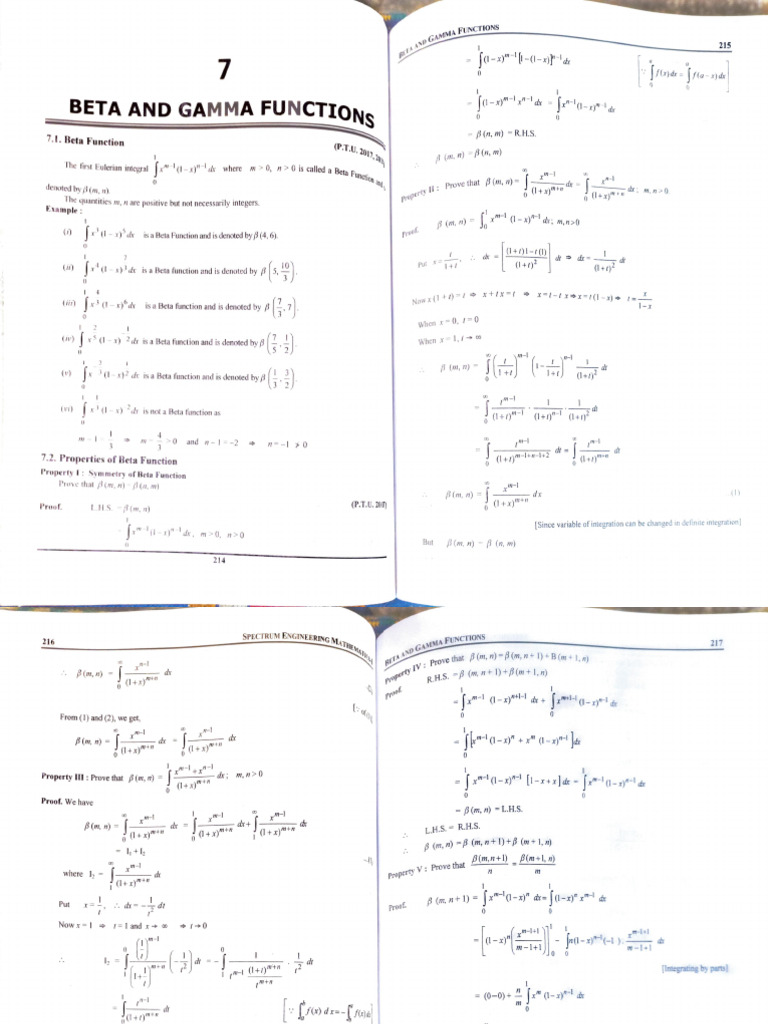 7
BETA AND GAMMA FUNCTIONS
7.1. Beta Function
(P.T.U. 2017,
The first Eulerian integral ∫₀¹ x^(m−1) (1−x)^(n−1) dx where m > 0, n > 0 is called a Beta Function and
denoted by β (m, n).
The quantities m, n are positive but not necessarily integers.
Example :
(i) ∫₀¹ x³ (1 − x)⁵ dx is a Beta Function and is denoted by β (4, 6).
(ii) is a Beta function and is denoted by β (5, 10/3).
(iii) is a Beta function and is denoted by β (7/3, 7).
(iv) is a Beta function and is denoted by β (7/5, 1/2).
(v) is a Beta function and is denoted by β (1/3, 3/2).
(vi) is not a Beta function as
m − 1 = 1/3 ⇒ m = 4/3 > 0 and n − 1 = −2 ⇒ n = −1 ≯ 0
7.2. Properties of Beta Function
Property I : Symmetry of Beta Function
Prove that β (m, n) = β (n, m)
Proof. L.H.S. = β (m, n)
(P.T.U.
= ∫₀¹ x^(m−1) (1−x)^(n−1) dx, m > 0, n > 0
214
BETA AND GAMMA FUNCTIONS
215
= ∫₀¹ (1−x)^(m−1) [1−(1−x)]^(n−1) dx
[∵ ∫₀ᵃ f(x) dx = ∫₀ᵃ f(a−x) dx]
= ∫₀¹ (1−x)^(m−1) x^(n−1) dx = ∫₀¹ x^(n−1) (1−x)^(m−1) dx
= β (n, m) = R.H.S.
∴ β (m, n) = β (n, m)
Property II : Prove that β (m, n) = ∫₀^∞ x^(m−1)/(1+x)^(m+n) dx = ∫₀^∞ x^(n−1)/(1+x)^(m+n) dx ; m, n > 0
Proof. β (m, n) = ∫₀¹ x^(m−1) (1−x)^(n−1) dx ; m, n > 0
Put x = t/(1+t), ∴ dx = [((1+t)1−t(1))/(1+t)²] dt ⇒ dx = 1/(1+t)² dt
Now x (1 + t) = t ⇒ x + t x = t ⇒ x = t − t x ⇒ x = t (1 − x) ⇒ t = x/(1−x)
When x = 0, t = 0
When x = 1, t → ∞
∴ β (m, n) = ∫₀^∞ (t/(1+t))^(m−1) (1 − t/(1+t))^(n−1) 1/(1+t)² dt
= ∫₀^∞ t^(m−1)/(1+t)^(m−1) · 1/(1+t)^(n−1) · 1/(1+t)² dt
= ∫₀^∞ t^(m−1)/(1+t)^(m−1+n−1+2) dt = ∫₀^∞ t^(m−1)/(1+t)^(m+n) dt
∴ β (m, n) = ∫₀^∞ x^(m−1)/(1+x)^(m+n) dx (1)
[Since variable of integration can be changed in definite integration]
But β (m, n) = β (n, m)
216
SPECTRUM ENGINEERING
∴ β (m, n) = ∫₀^∞ x^(n−1)/(1+x)^(m+n) dx
From (1) and (2), we get,
β (m, n) = ∫₀^∞ x^(m−1)/(1+x)^(m+n) dx = ∫₀^∞ x^(n−1)/(1+x)^(m+n) dx
Property III : Prove that β (m, n) = ∫₀¹ (x^(m−1) + x^(n−1))/(1+x)^(m+n) dx ; m, n > 0
Proof. We have
β (m, n) = ∫₀^∞ x^(m−1)/(1+x)^(m+n) dx = ∫₀¹ x^(m−1)/(1+x)^(m+n) dx + ∫₁^∞ x^(m−1)/(1+x)^(m+n) dx
= I₁ + I₂
where I₂ = ∫₁^∞ x^(m−1)/(1+x)^(m+n) dx
Put x = 1/t, ∴ dx = −1/t² dt
Now x = 1 ⇒ t = 1 and x → ∞ ⇒ t → 0
∴ I₂ = ∫₁⁰ (1/t)^(m−1)/(1+1/t)^(m+n) (−1/t²) dt = −∫₁⁰ 1/(t^(m−1) (1+t)^(m+n)/t^(m+n)) · 1/t² dt
= ∫₀¹ t^(n−1)/(1+t)^(m+n) dt [∵ ∫ₐᵇ f(x) dx = −∫ f(x) dx
BETA AND GAMMA FUNCTIONS
217
Property IV : Prove that β (m, n) = β (m, n + 1) + B (m + 1, n)
Proof. R.H.S. = β (m, n + 1) + β (m + 1, n)
= ∫₀¹ x^(m−1) (1−x)^(n+1−1) dx + ∫₀¹ x^(m+1−1) (1−x)^(n−1) dx
= ∫₀¹ [x^(m−1) (1−x)^n + x^m (1−x)^(n−1)] dx
= ∫₀¹ x^(m−1) (1−x)^(n−1) [1−x+x] dx = ∫₀¹ x^(m−1) (1−x)^(n−1) dx
= β (m, n) = L.H.S.
∴ L.H.S. = R.H.S.
∴ β (m, n) = β (m, n + 1) + β (m + 1, n)
Property V : Prove that β(m, n+1)/n = β(m+1, n)/m
Proof. β (m, n + 1) = ∫₀¹ x^(m−1) (1−x)^n dx = ∫₀¹ (1−x)^n x^(m−1) dx
= [(1−x)^n (x^(m−1+1)/(m−1+1))]₀¹ − ∫₀¹ n(1−x)^(n−1) (−1) · x^(m−1+1)/(m−1+1) dx
[Integrating by parts]
= (0−0) + n/m ∫₀¹ x^m (1−x)^(n−1) dx